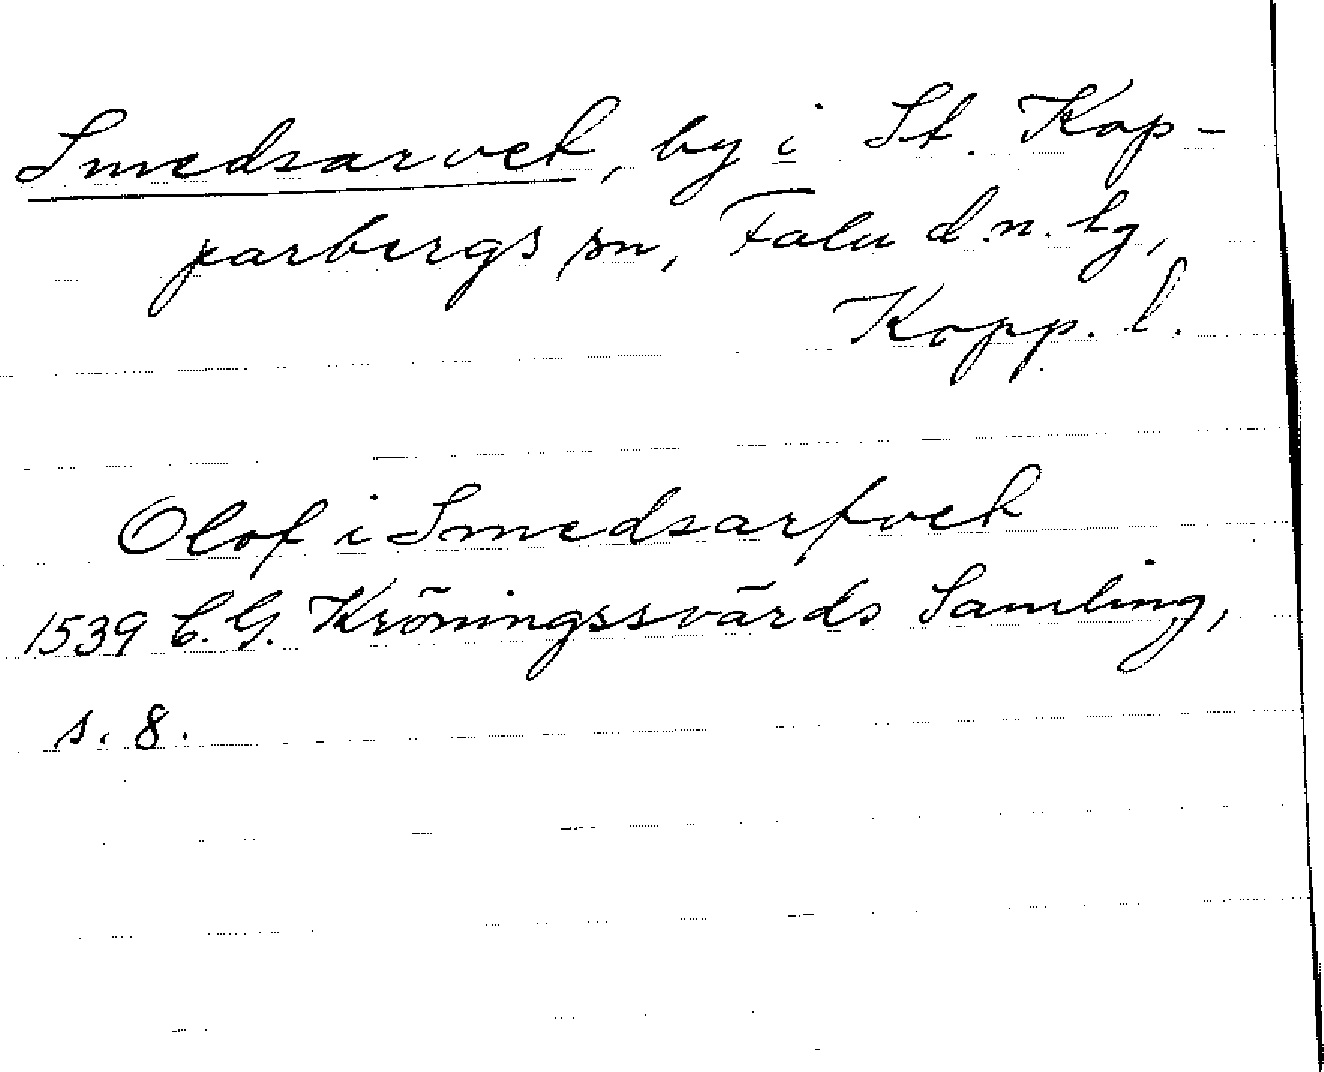 Smedsarvet, by i St. Kop-
parbergs sn, Falu d.n. hg,
Kopp. l.
Olof i Smedsarfvet
1539 C.G. Kröningssvärds Samling,
s. 8.